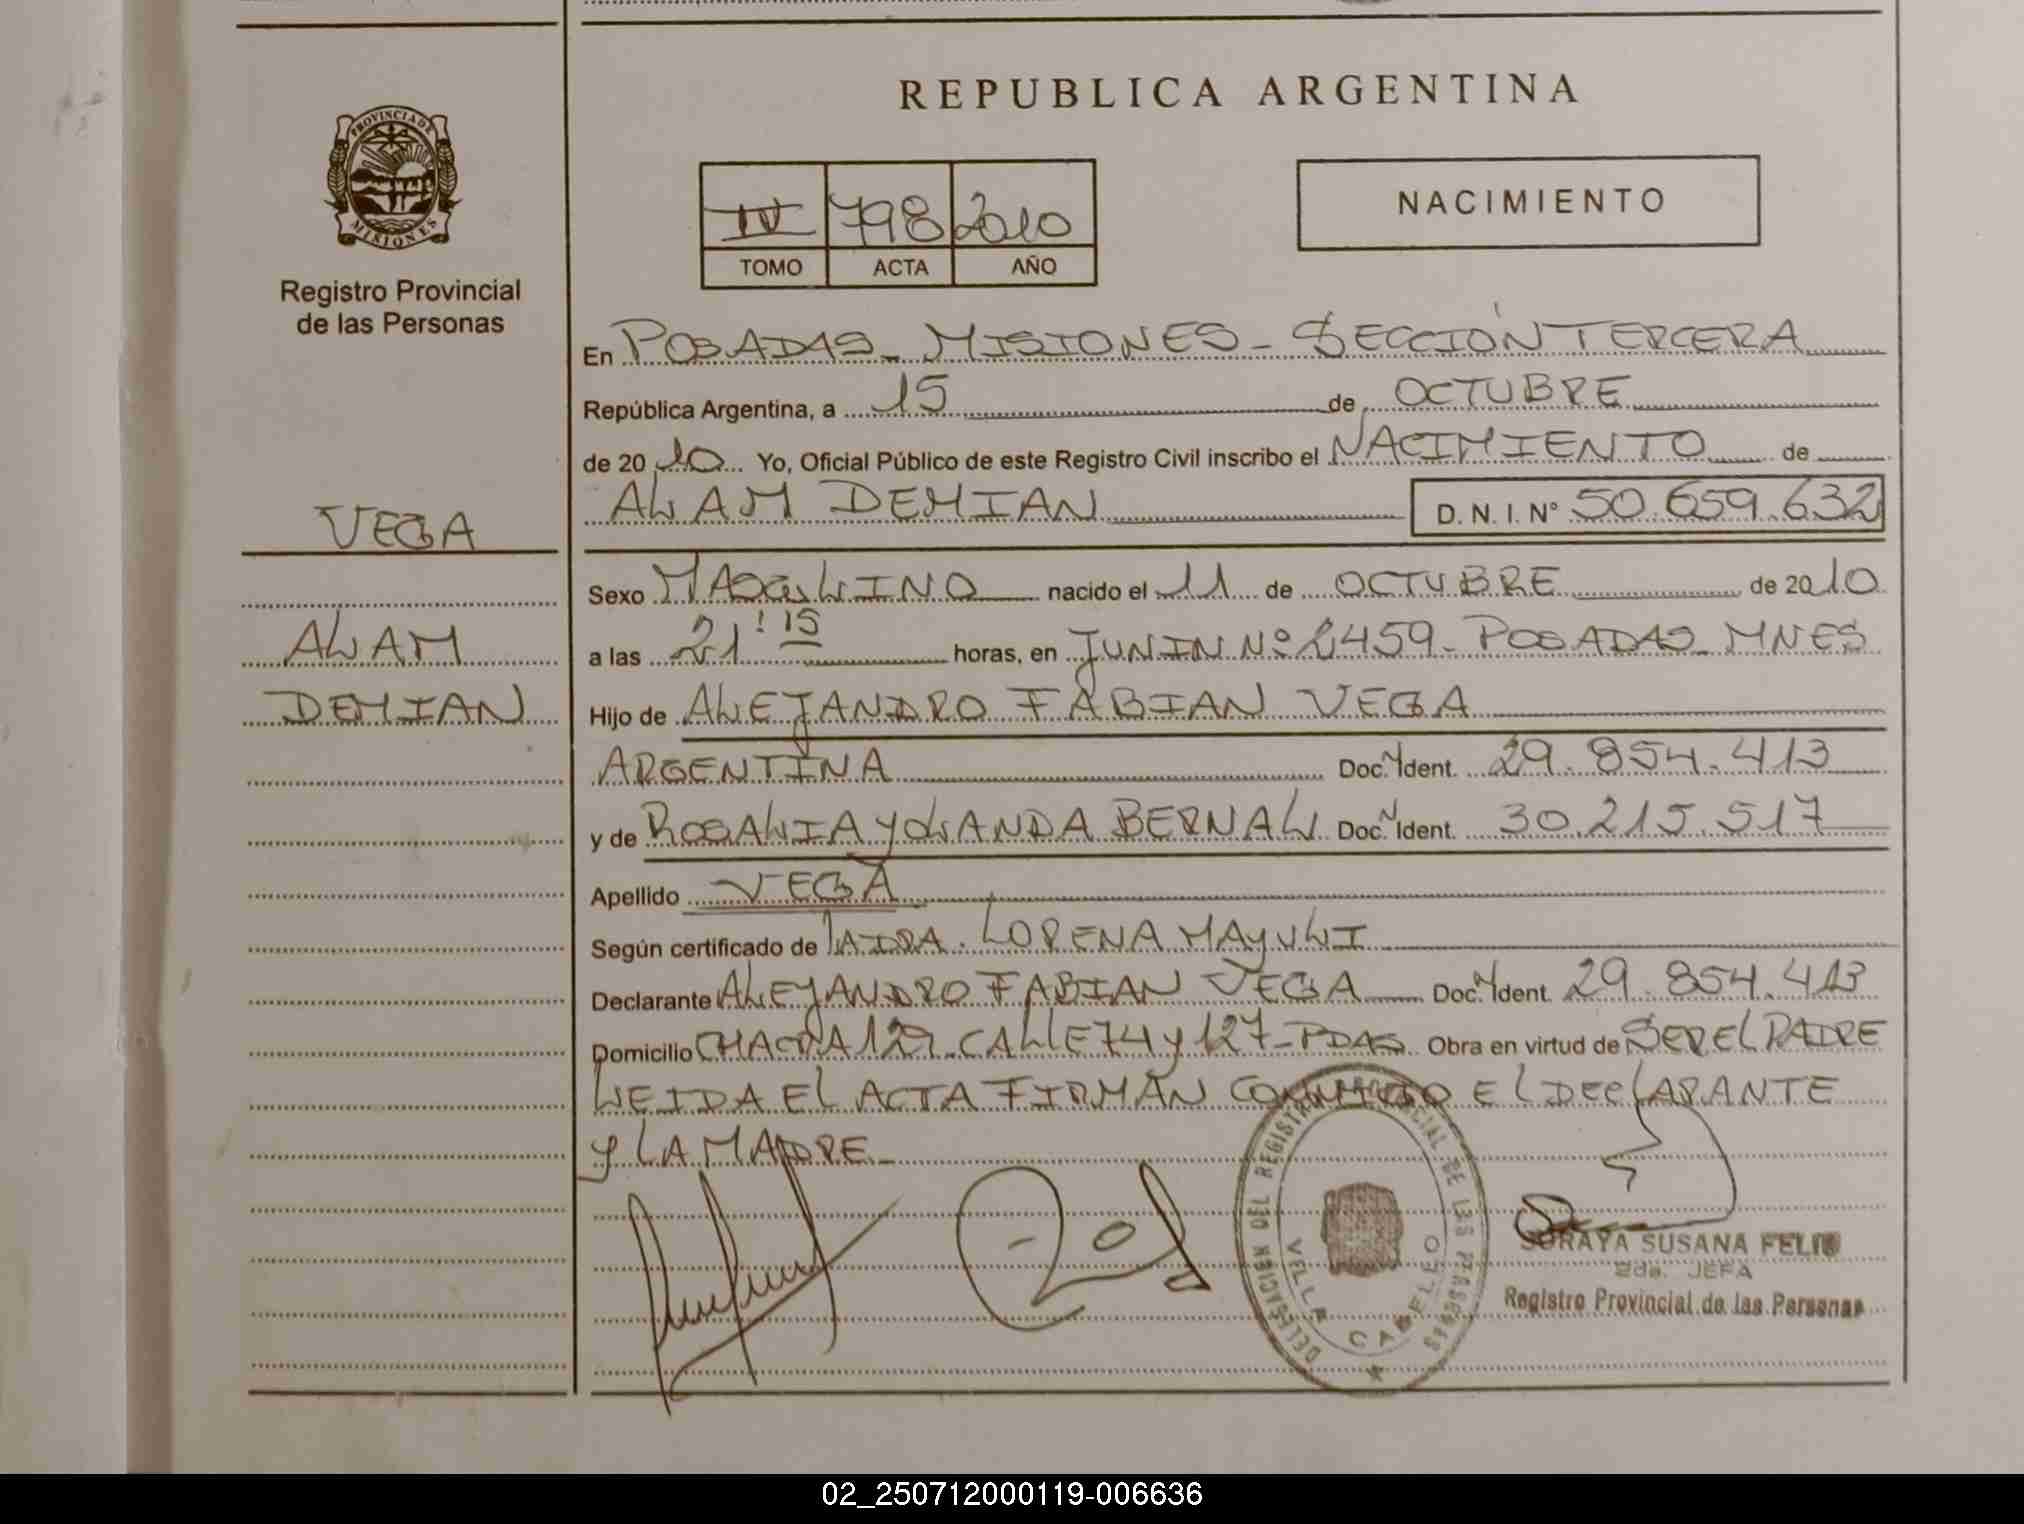 REPUBLICA ARGENTINA
PROVINCIA DE
MISIONES
Registro Provincial
de las Personas
IV 798 2010
TOMO ACTA AÑO
NACIMIENTO
En POSADAS - MISIONES - SECCIÓN TERCERA
República Argentina, a 15 de OCTUBRE
de 2010 Yo, Oficial Público de este Registro Civil inscribo el NACIMIENTO de
ALAM DEMIAN D.N.I. N° 50.659.632
VEGA
ALAM
DEMIAN
Sexo MASCULINO nacido el 11 de OCTUBRE de 2010
a las 21:15 horas, en JUNIN Nº 2459 - POSADAS - MNES
Hijo de ALEJANDRO FABIAN VEGA
ARGENTINA Doc. N Ident. 29.854.413
y de ROSALIA YOLANDA BERNAL Doc. N Ident. 30.215.517
Apellido VEGA
Según certificado de LORENA MAYULI
Declarante ALEJANDRO FABIAN VEGA Doc. N Ident. 29.854.413
Domicilio CHACRA 129 - CALLE 74 y 127 - PDAS Obra en virtud de SER EL PADRE
LEIDA EL ACTA FIRMAN CONMIGO EL DECLARANTE
Y LA MADRE -
DELEGACION DEL REGISTRO PROVINCIAL DE LAS PERSONAS
VILLA CABELLO
SORAYA SUSANA FELIU
2da. JEFA
Registro Provincial de las Personas
02_250712000119-006636